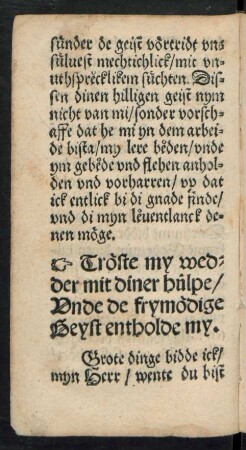 sünder de geist vörtridt vns
süluest mechtichlick/mit vn-
uthspröcklikem süchten. Dis-
sen dinen hilligen geist nym
nicht van mi/sonder vorsch-
affe dat he mi yn dem arbei-
de bista/my lere beden/vnde
ym gebede vnd flehen anhol-
den vnd vorharren/vp dat
ick entlick bi di gnade finde/
vnd di myn leuentlanck de-
nen möge.
☞ Tröste my wed-
der mit diner hülpe/
Vnde de frymödige
Geyst entholde my.
Grote dinge bidde ick/
myn Herr/wente du bist